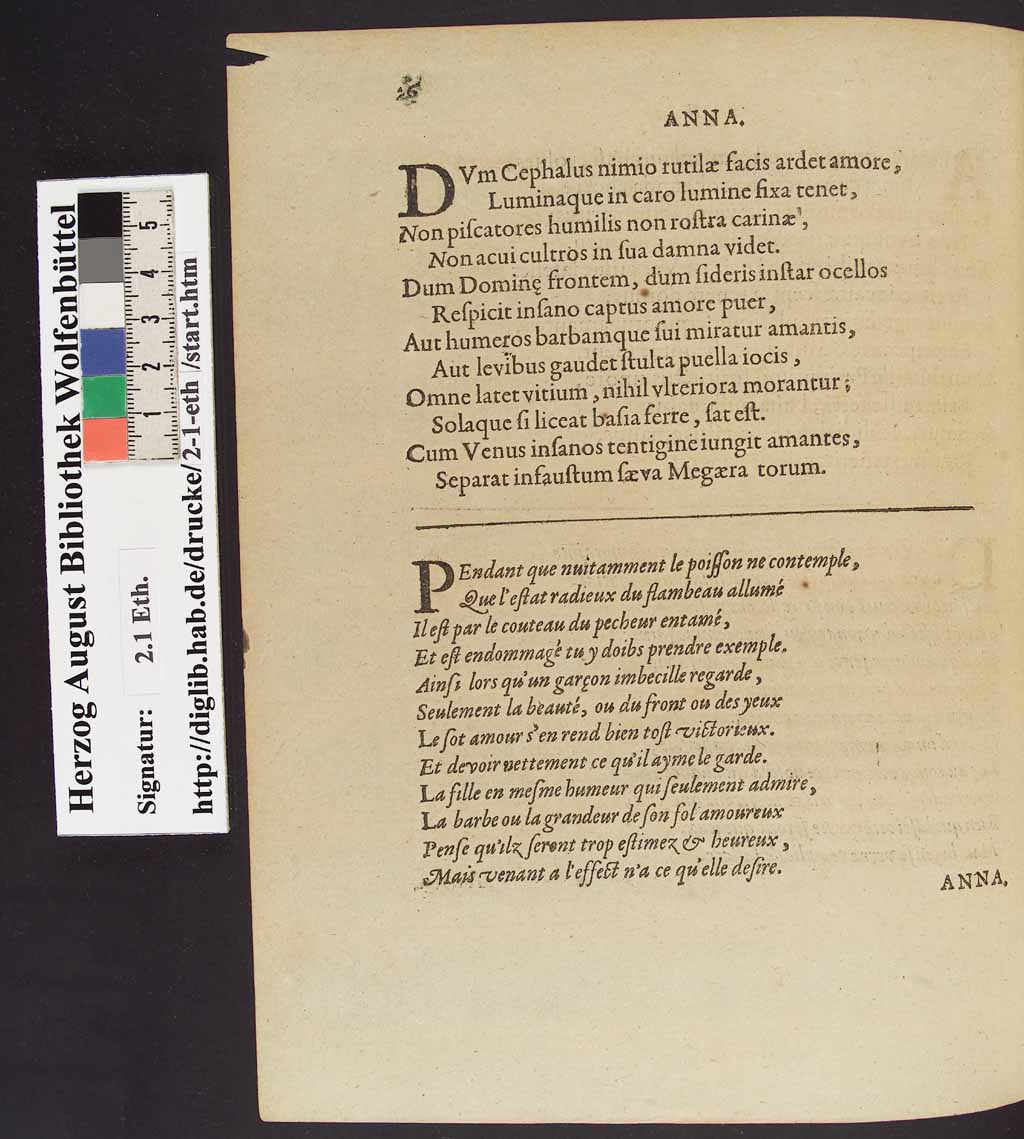 Herzog August Bibliothek Wolfenbüttel
Signatur: 2.1 Eth.
http://diglib.hab.de/drucke/2-1-eth /start.htm
1 2 3 4 5
ANNA.
DVm Cephalus nimio rutilæ facis ardet amore,
Luminaque in caro lumine fixa tenet,
Non piſcatores humilis non roſtra carinæ,
Non acui cultros in ſua damna videt.
Dum Dominę frontem, dum ſideris inſtar ocellos
Reſpicit inſano captus amore puer,
Aut humeros barbamque ſui miratur amantis,
Aut levibus gaudet ſtulta puella iocis,
Omne latet vitium, nihil vlteriora morantur;
Solaque ſi liceat baſia ferre, ſat eſt.
Cum Venus inſanos tentigine iungit amantes,
Separat infauſtum ſæva Megæra torum.
PEndant que nuitamment le poiſſon ne contemple,
Que l'eſtat radieux du flambeau allumé
Il eſt par le couteau du pecheur entamé,
Et eſt endommagé tu y doibs prendre exemple.
Ainſi lors qu'un garçon imbecille regarde,
Seulement la beauté, ou du front ou des yeux
Le ſot amour s'en rend bien toſt victorieux.
Et devoir nettement ce qu'il ayme le garde.
La fille en meſme humeur qui ſeulement admire,
La barbe ou la grandeur de ſon fol amoureux
Penſe qu'ilz ſeront trop eſtimez & heureux,
Mais venant a l'effect n'a ce qu'elle deſire.
ANNA.